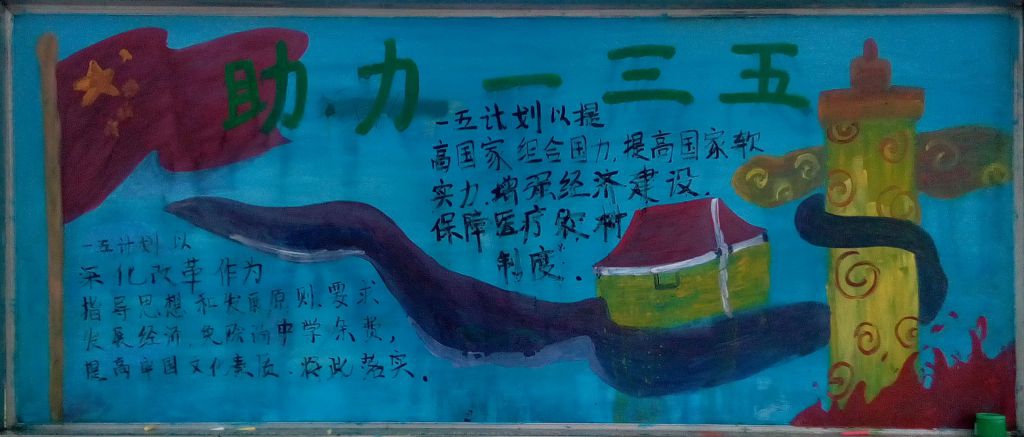 助力一三五
一五计划以提
高国家组合国力,提高国家软
实力,增强经济建设.
保障医疗农村
制度.
一五计划以
深化改革作为
指导思想和发展原则.要求
发展经济,免除高中学杂费,
提高中国文化素质.将此落实.